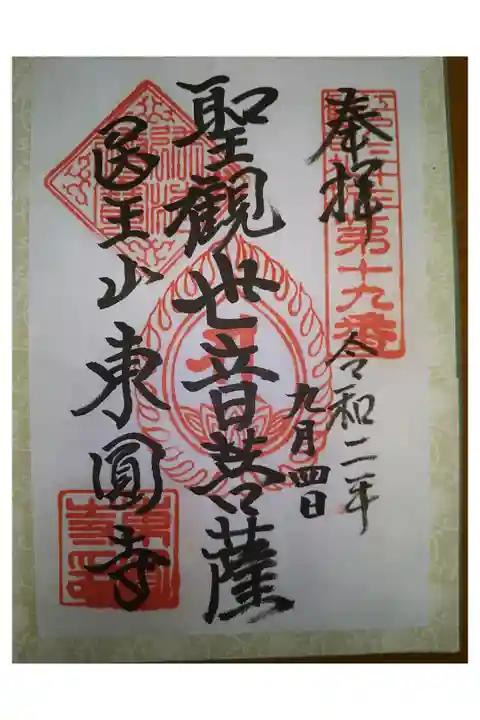 奉拝
第十九番
令和二年
九月四日
聖觀世音菩薩
医王山東圓寺